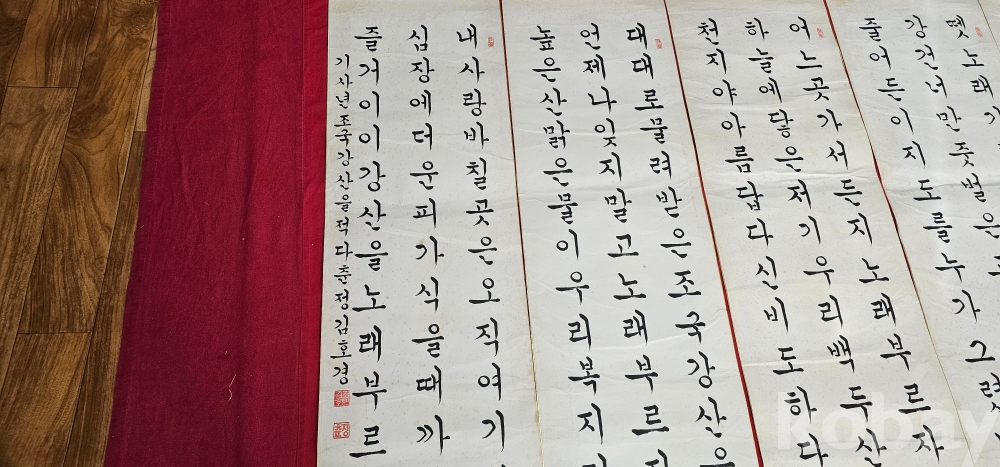 뗏노래
강건너만줏벌은
줄어든이지도를누가그렷
어느곳가서든지노래부르자
하늘에닿은저기우리백두산
천지야아름답다신비도하다
대대로물려받은조국강산은
언제나잊지말고노래부르
높은산맑은물이우리복지
내사랑바칠곳은오직여기
심장에더운피가식을때까
즐거이이강산을노래부르
기사년조국강산을적다춘정김호경
kobay